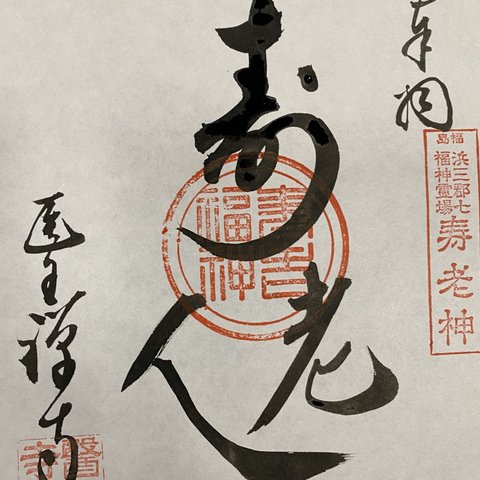 奉拝
福島
浜三郡七
福神霊場
寿老神
壽老人
壽老
福神
医王禅寺